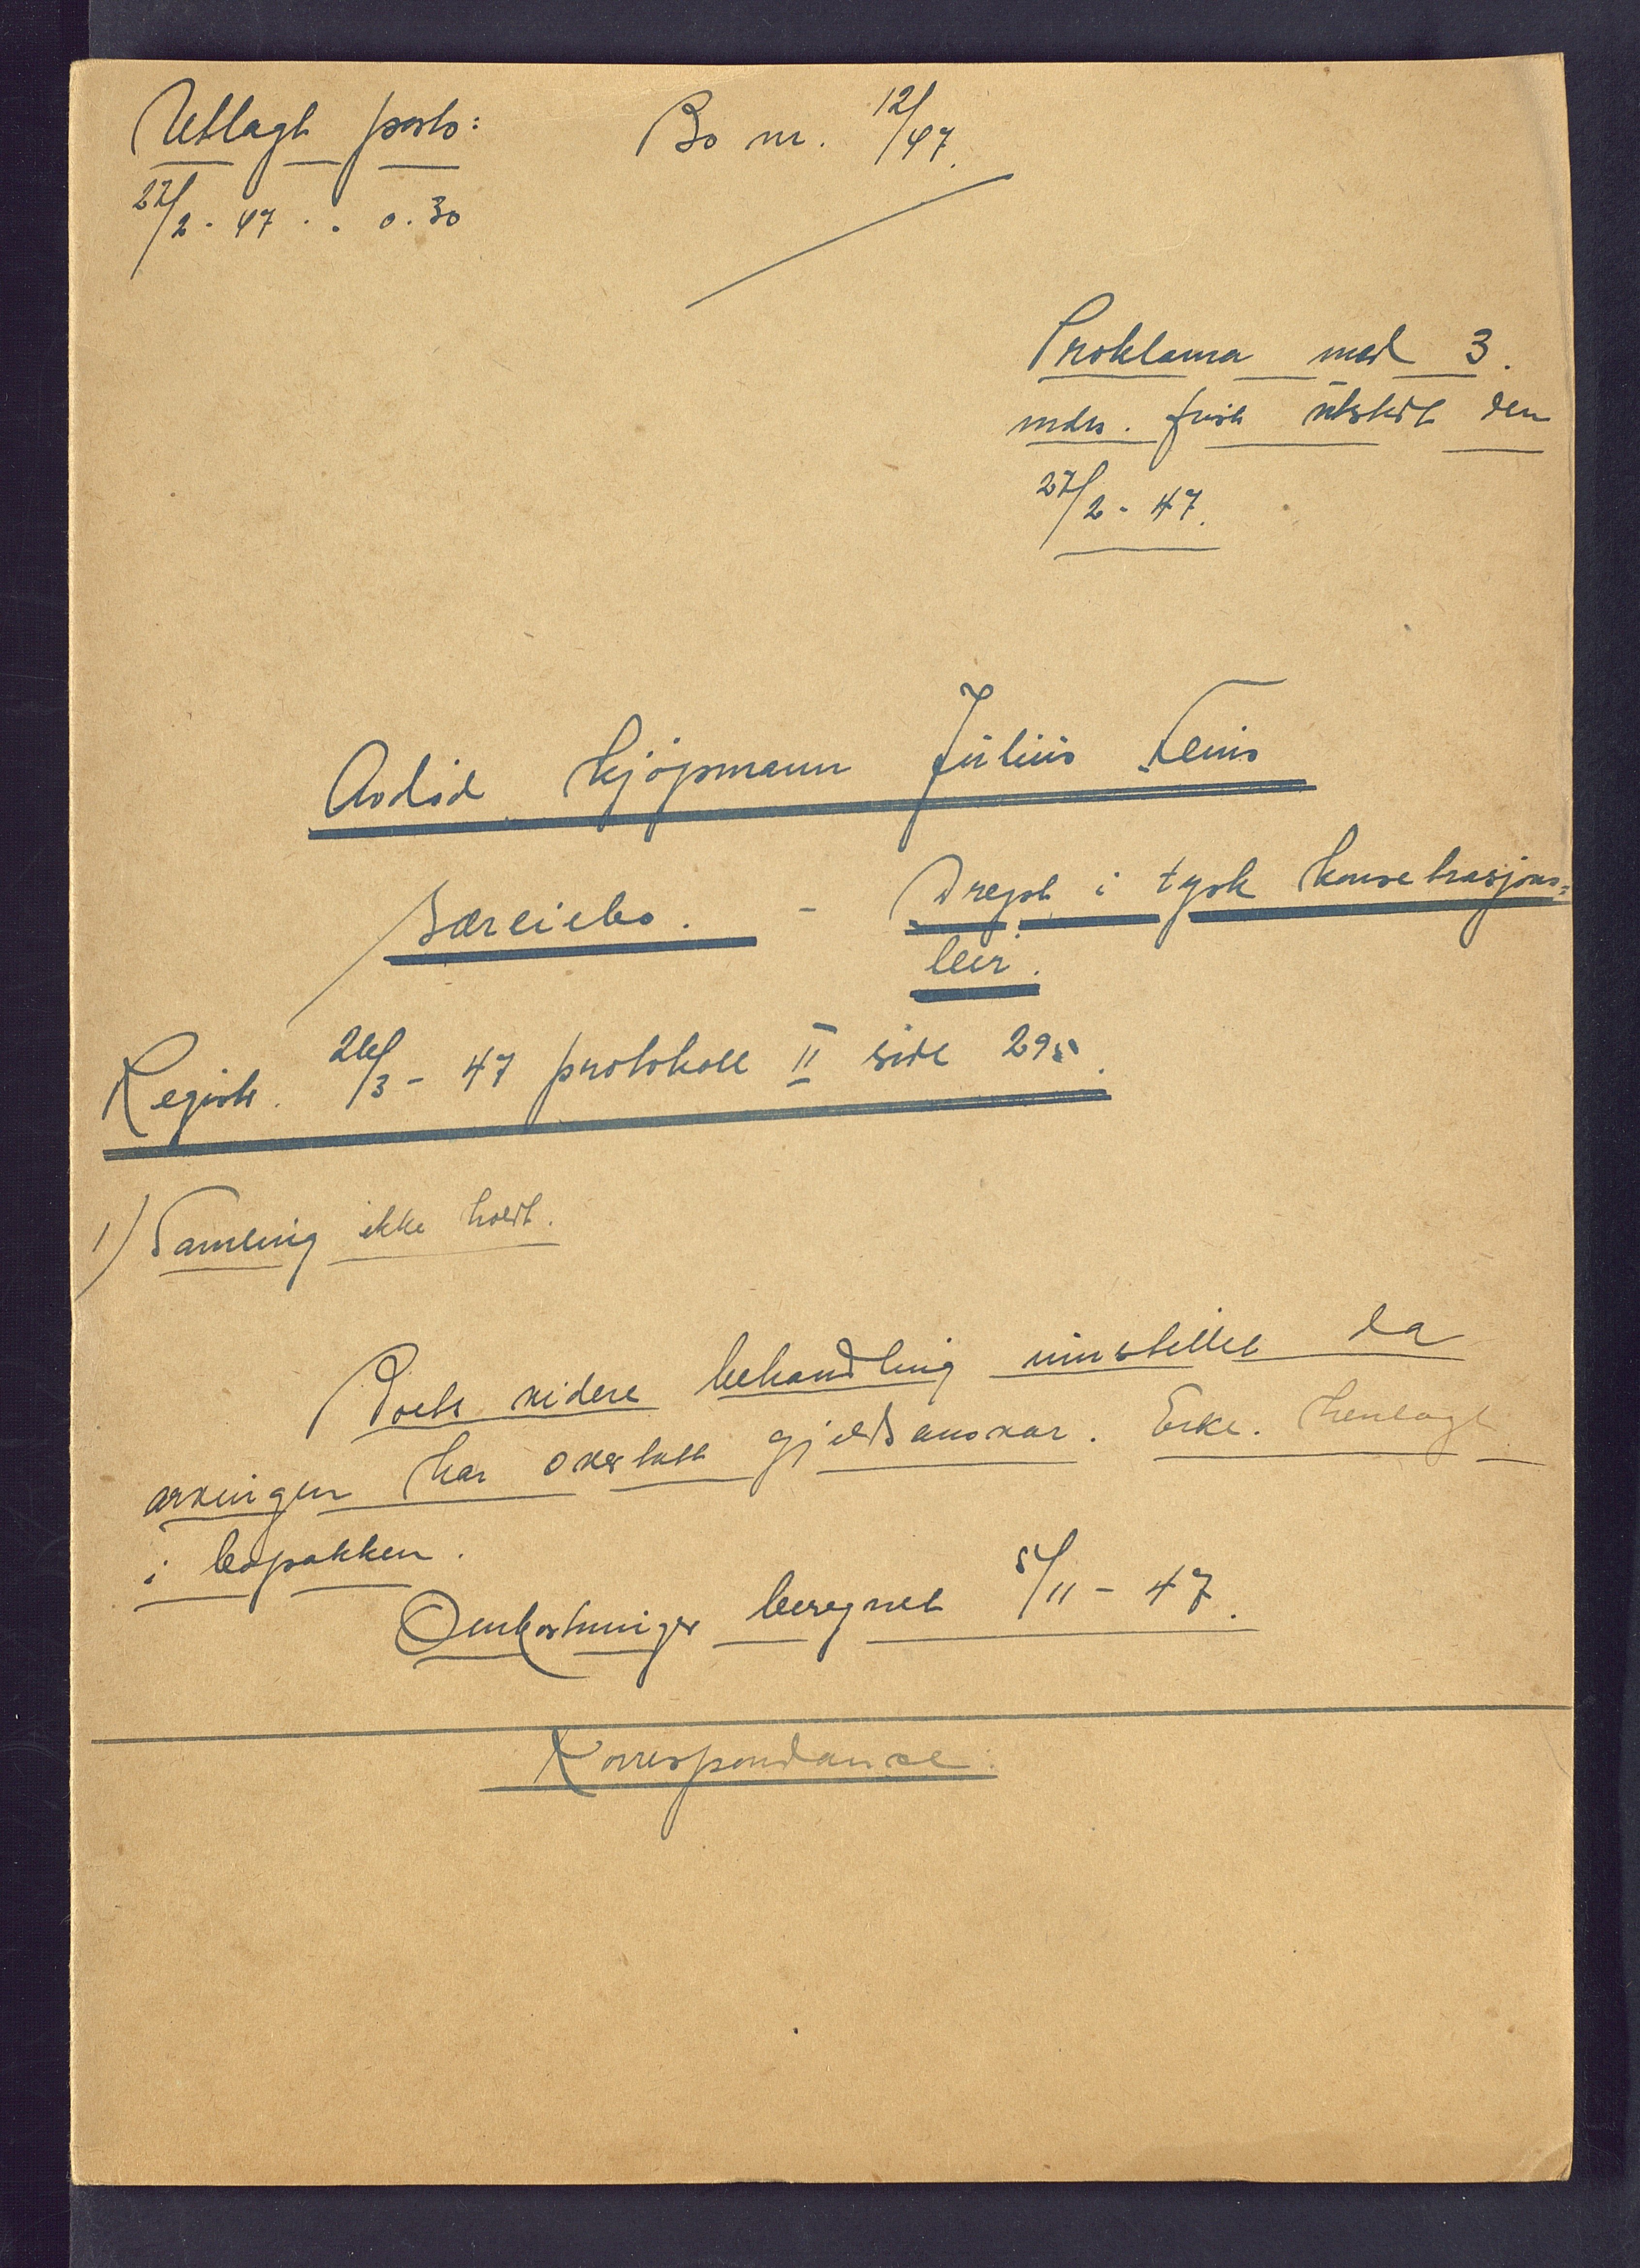 Utlagt porto:
27/2 - 47 . . 0.30
Bo nr. 12/47.
Proklama med 3.
mdrs. frist utstedt den
27/2 - 47.
Avdød kjøpmann Julius Feins
særeiebo. - Drept i tysk konsetrasjons=
leir.
Registr. 26/3 - 47 protokoll II side 295.
1) Samling ikke holdt.
Boets videre behandling innstillet da
arvingen har overtatt gjeldsansvar. Erkl. henlagt
i bopakken.
Omkostninger beregnet 5/11 - 47.
Korrespondanse.